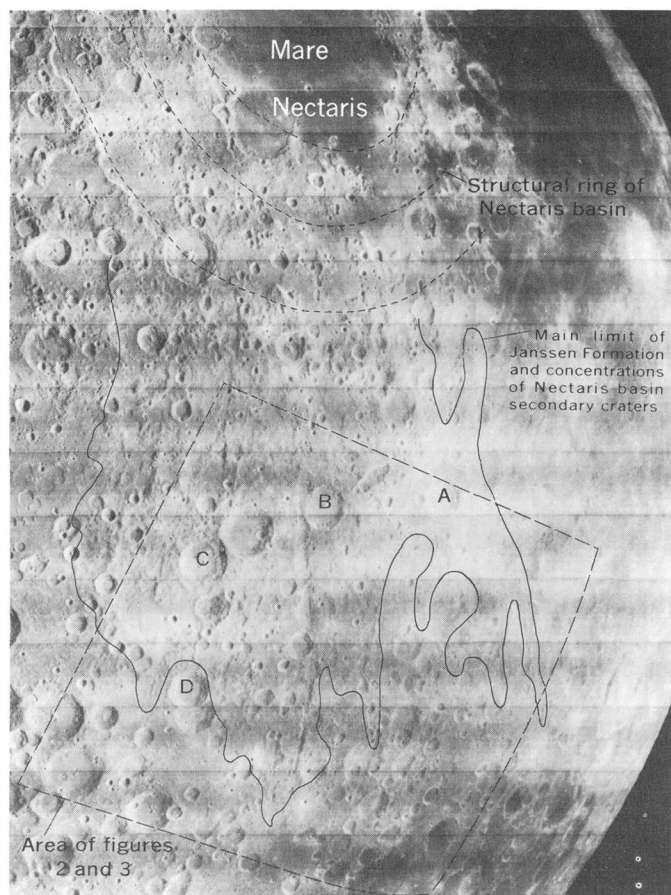 Mare
Nectaris
Structural ring of
Nectaris basin
Main limit of
Janssen Formation
and concentrations
of Nectaris basin
secondary craters
A
B
C
D
Area of figures
2 and 3